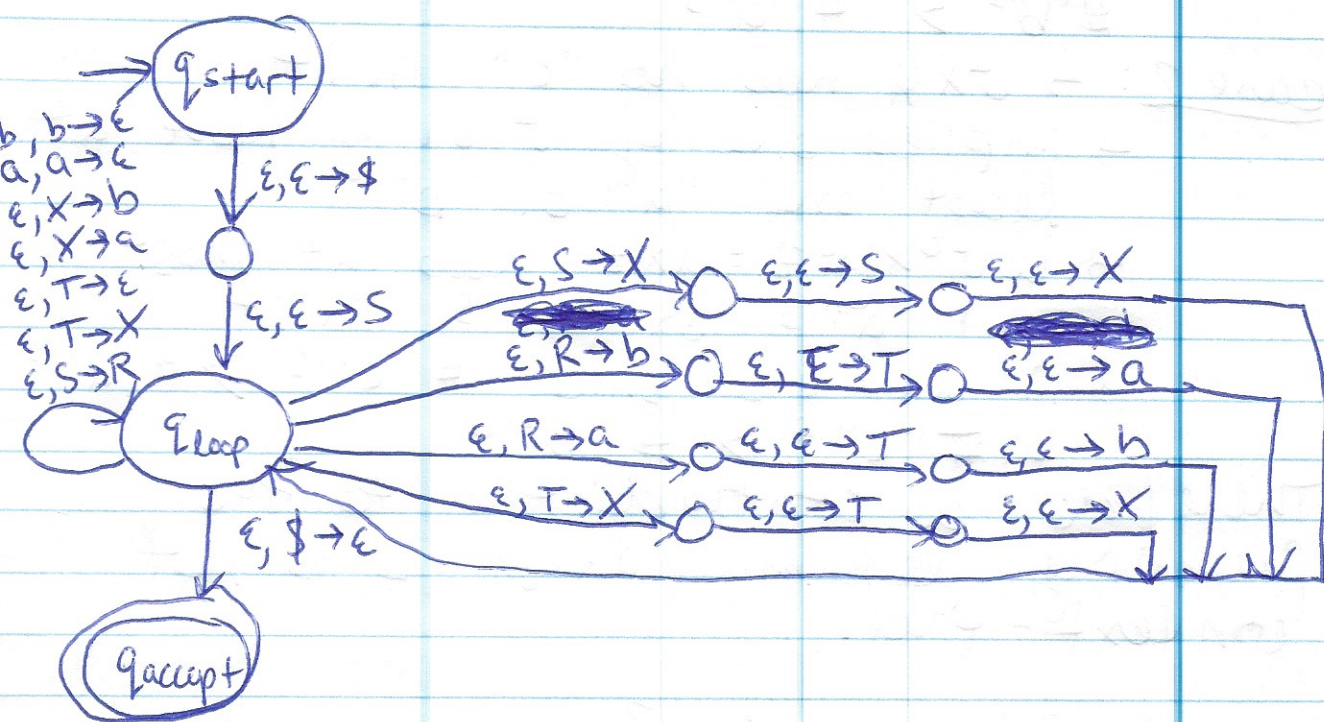 qstart
b, b→ε
a, a→ε
ε, X→b
ε, X→a
ε, T→ε
ε, T→X
ε, S→R
ε, ε→$
ε, ε→S
ε, S→X
ε, ε→S
ε, ε→X
ε, R→b
ε, ε→T
ε, ε→a
qloop
ε, R→a
ε, ε→T
ε, ε→b
ε, T→X
ε, ε→T
ε, ε→X
ε, $→ε
qaccept